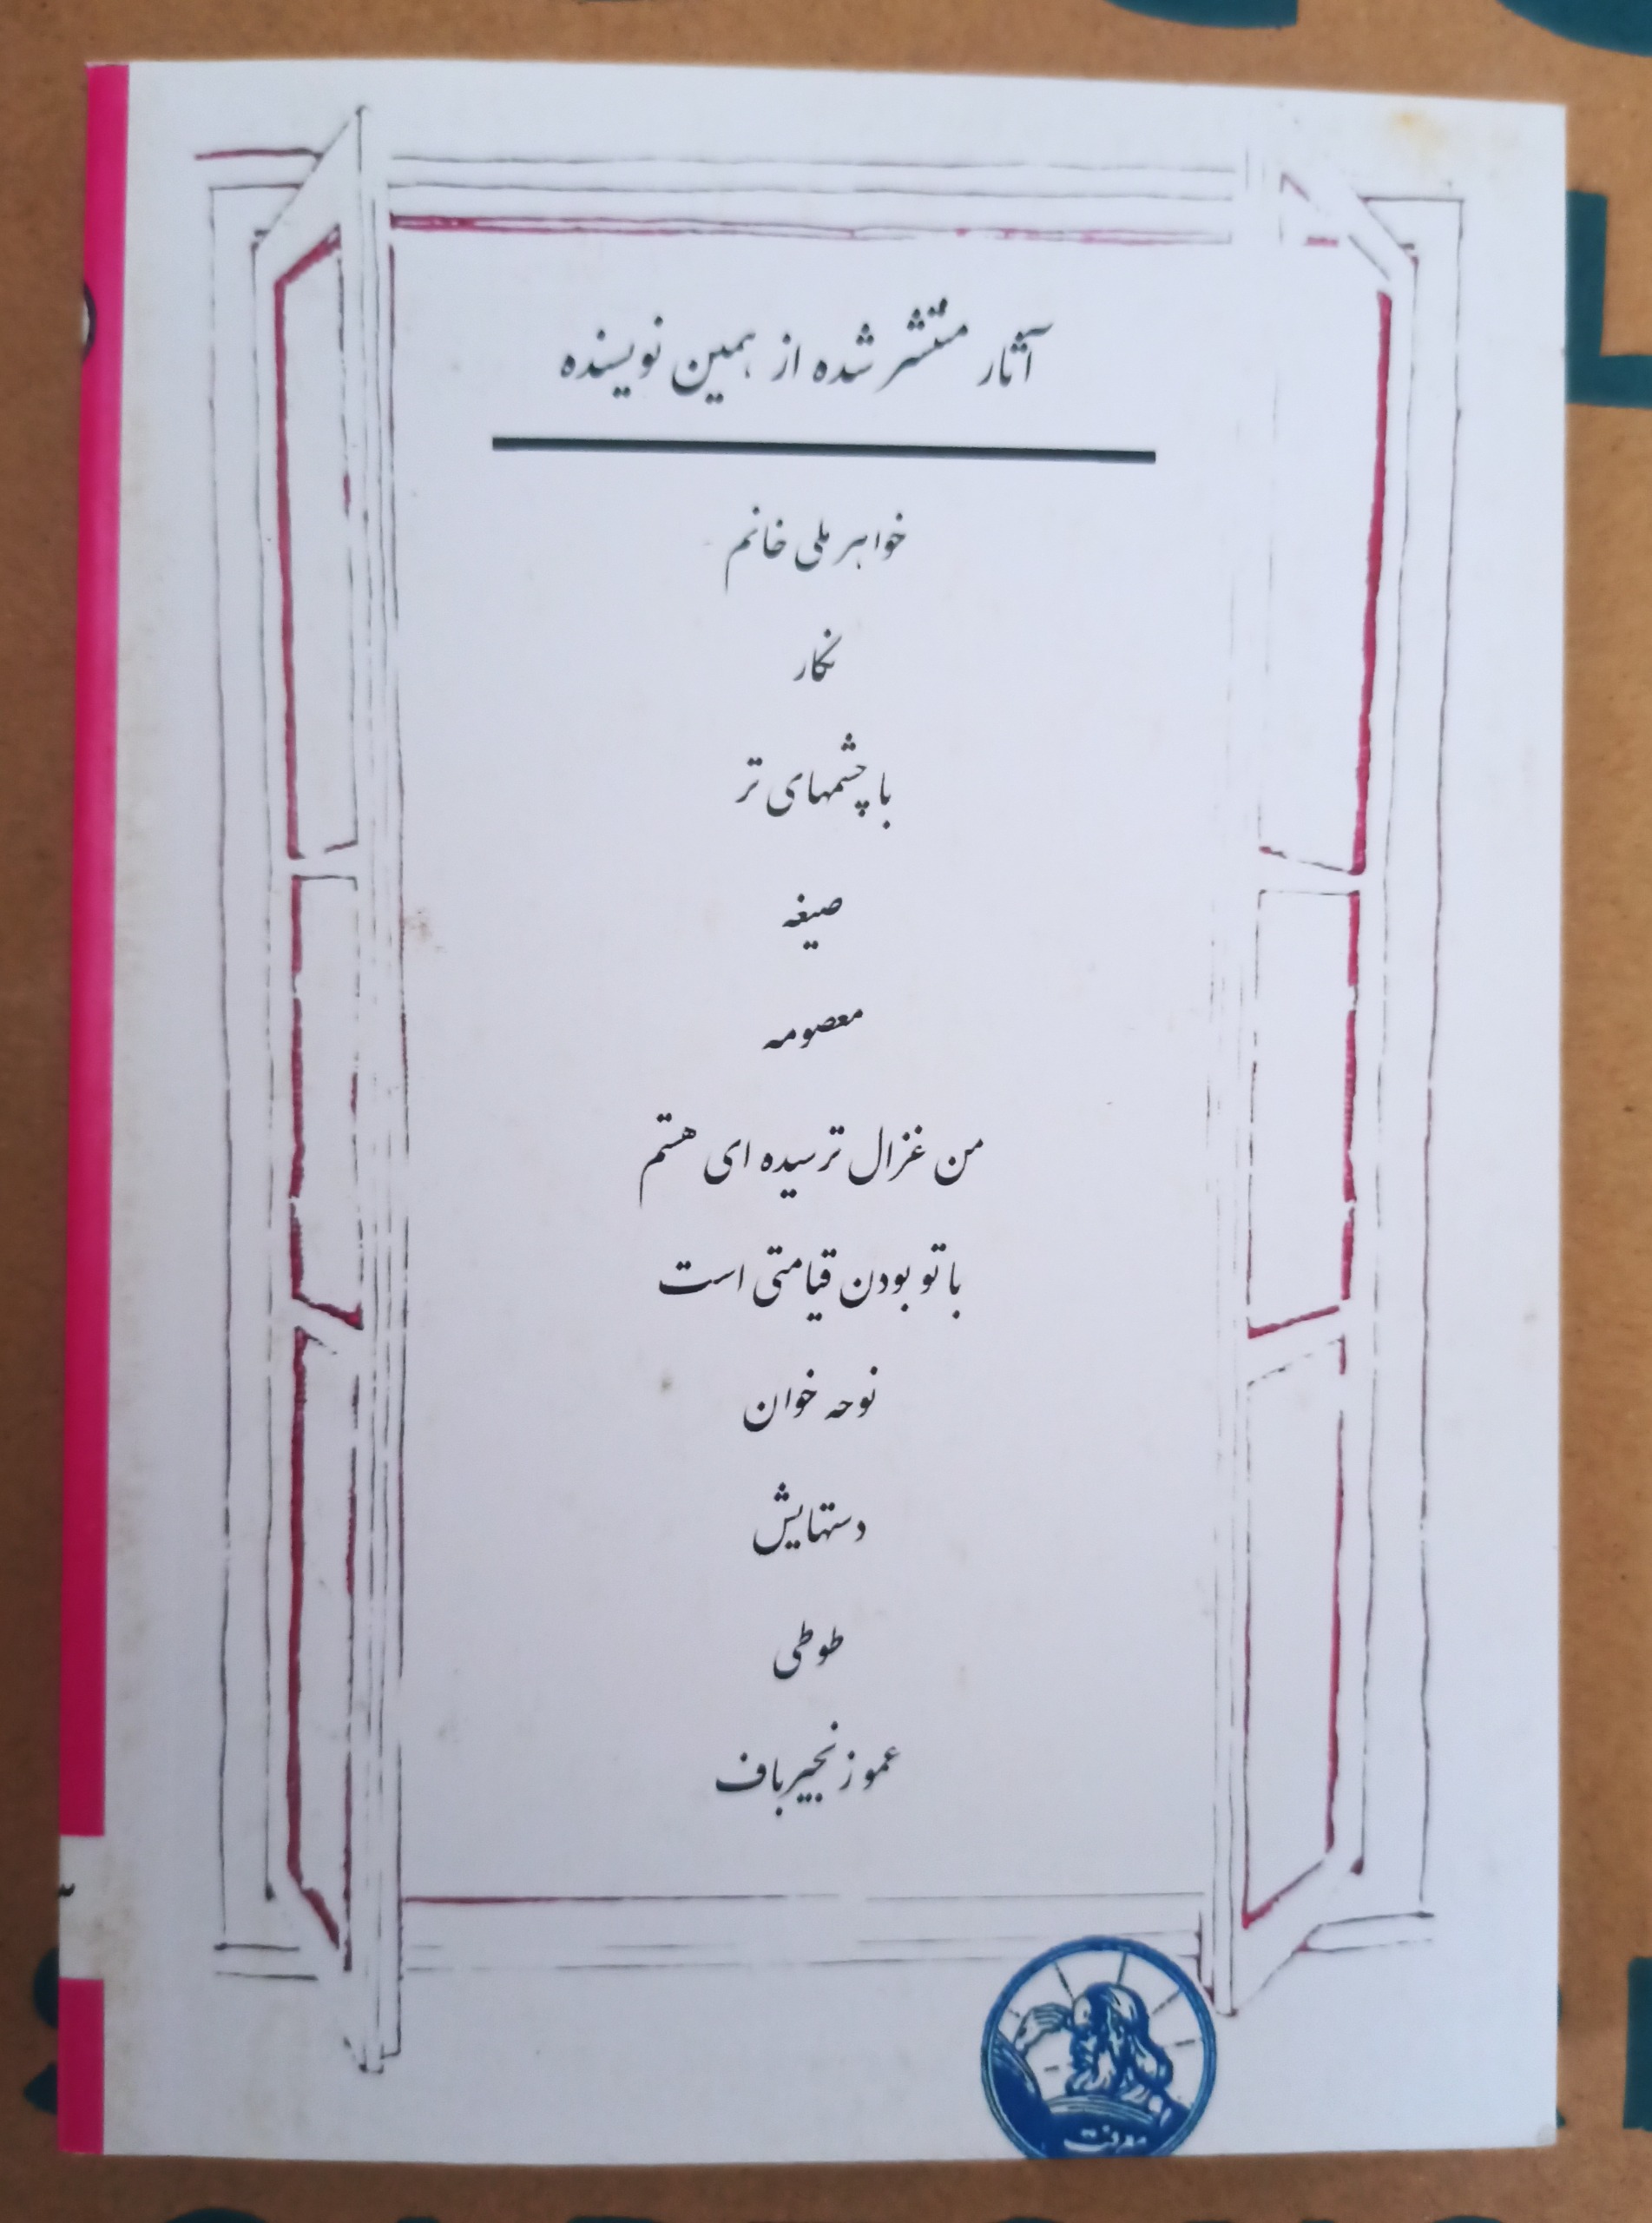 آثار منتشر شده از همین نویسنده
خواهر ملی خانم
نگار
با چشمهای تر
صیغه
معصومه
من غزال ترسیده ای هستم
با تو بودن قیامتی است
نوحه خوان
دستهایش
طوطی
عمو زنجیرباف
معرفت